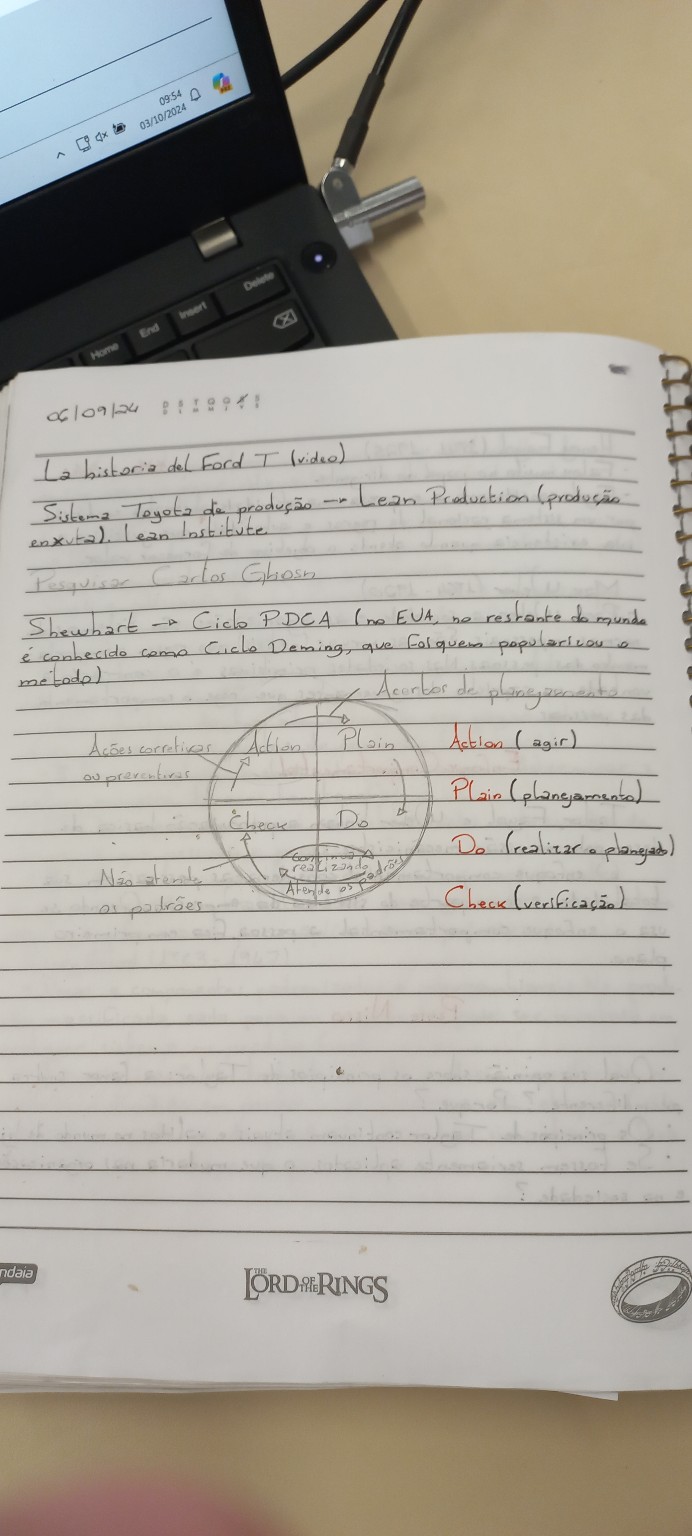 09:54
03/10/2024
Delete
Insert
End
Home
06/09/24
D S T Q Q S S
La historia del Ford T (video)
Sistema Toyota de produção → Lean Production (produção
enxuta). Lean Institute
Pesquisar Carlos Ghosn
Shewhart → Ciclo PDCA (no EUA, no restante do mundo
é conhecido como Ciclo Deming, que foi quem popularizou o
método)
Acertos de planejamento
Ações corretivas
ou preventivas
Action
Plain
Check
Do
Continua
realizando
Atende os padrões
Não atende
os padrões
Action (agir)
Plain (planejamento)
Do (realizar o planejado)
Check (verificação)
ndaia
THE LORD OF THE RINGS